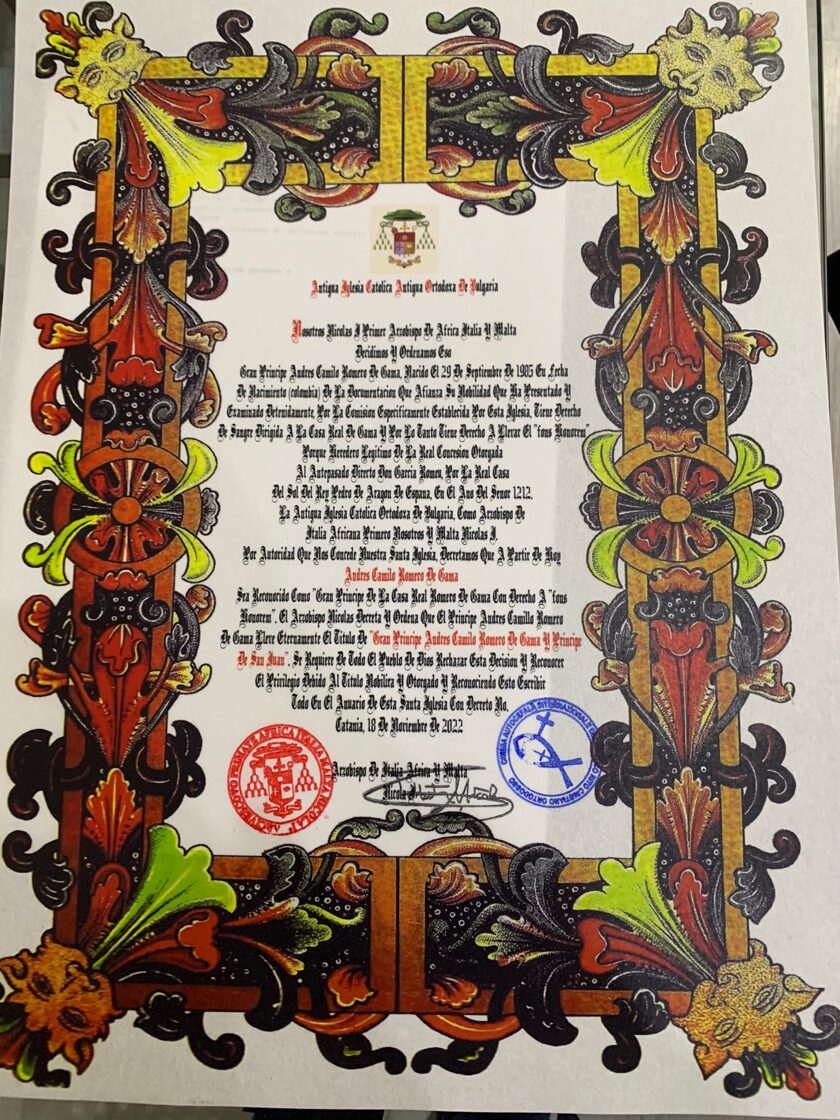 Antigua Iglesia Catolica Antigua Ortodoxa De Bulgaria
Nosotros Nicolas I Primer Arzobispo De Africa Italia Y Malta
Decidimos Y Ordenamos Eso
Gran Principe Andres Camilo Romero De Gama, Nacido El 29 De Septiembre De 1985 En Fecha
De Nacimiento (colombia) De La Documentacion Que Afianza Su Nobilidad Que Ha Presentado Y
Examinado Detenidamente, Por La Comision Especificamente Establecida Por Esta Iglesia, Tiene Derecho
De Sangre Dirigida A La Casa Real De Gama Y Por Lo Tanto Tiene Derecho A Llevar El "fons Honorem"
Porque Heredero Legitimo De La Real Concesion Otorgada
Al Antepasado Directo Don Garcia Romeu, Por La Real Casa
Del Sol Del Rey Pedro De Aragon De Espana, En El Ano Del Senor 1212,
La Antigua Iglesia Catolica Ortodoxa De Bulgaria, Como Arzobispo De
Italia Africana Primero Nosotros Y Malta Nicolas I,
Por Autoridad Que Nos Concede Nuestra Santa Iglesia, Decretamos Que A Partir De Hoy
Andres Camilo Romero De Gama
Sea Reconocido Como "Gran Principe De La Casa Real Romero De Gama Con Derecho A "fons
Honorem", El Arzobispo Nicolas Decreta Y Ordena Que El Principe Andres Camillo Romero
De Gama Lleve Eternamente El Titulo De "Gran Principe Andres Camilo Romero De Gama Y Principe
De San Juan", Se Requiere De Todo El Pueblo De Dios Rechazar Esta Decision Y Reconocer
El Privilegio Debido Al Titulo Nobilira Y Otorgado Y Reconociendo Esto Escribir
Todo En El Anuario De Esta Santa Iglesia Con Decreto No,
Catania, 18 De Noviembre De 2022
Arzobispo De Italia Africa Y Malta
Nicola
ARCIVESCOVO PRIMATE AFRICA ITALIA MALTA NICOLA I°
CHIESA AUTOCEFALA INTERNAZIONALE DI RITO CRISTIANO ORTODOSSO